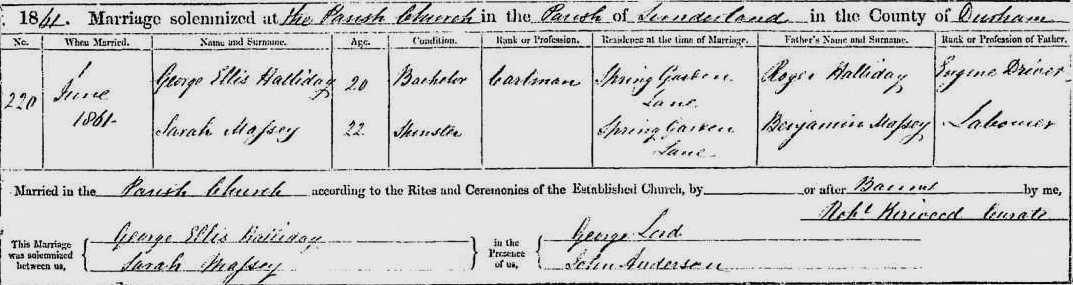 1861. Marriage solemnized at the Parish Church in the Parish of Sunderland in the County of Durham
No. When Married. Name and Surname. Age. Condition. Rank or Profession. Residence at the time of Marriage. Father's Name and Surname. Rank or Profession of Father.
220 1 June 1861. George Ellis Halliday 20 Bachelor Cartman Spring Garden Lane Roger Halliday Engine Driver
Sarah Massey 22 Spinster Spring Garden Lane Benjamin Massey Labourer
Married in the Parish Church according to the Rites and Ceremonies of the Established Church, by or after Banns by me,
Robt. Curate
This Marriage was solemnized between us, George Ellis Halliday Sarah Massey in the Presence of us, George John Anderson